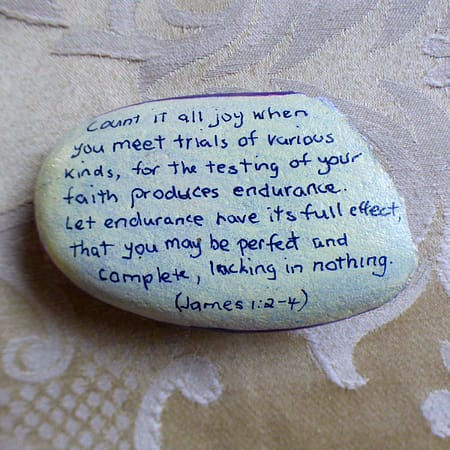 Count it all joy when
you meet trials of various
kinds, for the testing of your
faith produces endurance.
Let endurance have its full effect,
that you may be perfect and
complete, lacking in nothing.
(James 1:2-4)